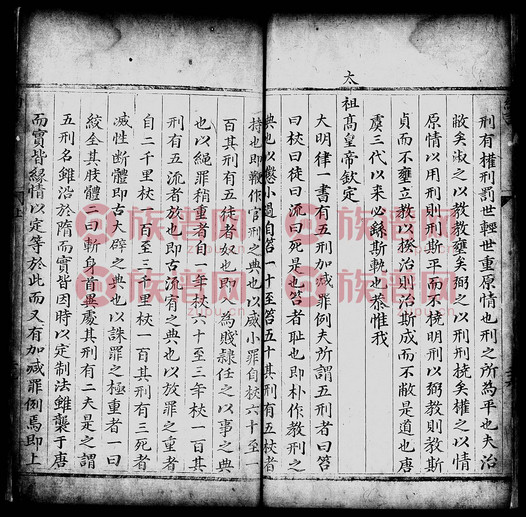 刑有權刑罰世輕世重原情也刑之所為平也夫治
敝矣淑之以教教壅矣弼之以刑刑撓矣權之以情
原情以用刑則刑斯平而不橈明刑以弼教則教斯
貞而不壅立教以揆治則治斯成而不敝是道也唐
虞三代以来必繇斯軌也恭惟我
太祖高皇帝欽定
大明律一書有五刑加减罪例夫所謂五刑者曰笞
曰杖曰徒曰流曰死是也笞者恥也即朴作教刑之
典也以懲小過自笞一十至笞五十其刑有五杖者
持也即鞭作官刑之典也以威小罪自杖六十至
百其刑有五徒者奴也即為賤隸任之以事之典
也以繩罪稍重者自一年杖六十至三年杖一百其
刑有五流者放也即古流宥之典也以放罪之重者
自二千里杖一百至三千里杖一百其刑有三死者
滅性断體即古大辟之典也以誅罪之極重者一曰
絞全其肢體二曰斬身首異處其刑有二夫是之謂
五刑名雖治於隋而實皆因時以定制法雖襲于唐
而實皆緣情以定等於此而又有加减罪例焉即上
族谱网
zupu.cn